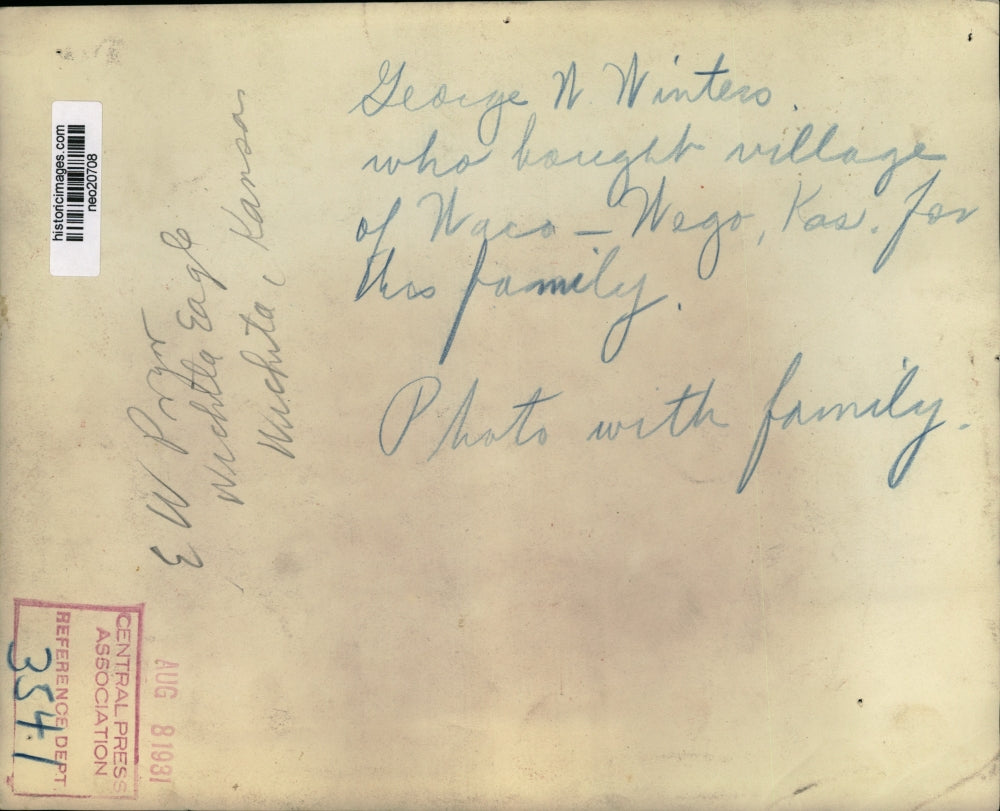 George W. Winters.
who bought village
of Waco - Wego, Kas. for
his family.
Photo with family.
E W Pryor
Wichita Eagle
Wichita Kansas
historicimages.com
neo20708
CENTRAL PRESS
ASSOCIATION
REFERENCE DEPT.
3541
AUG 8 1931